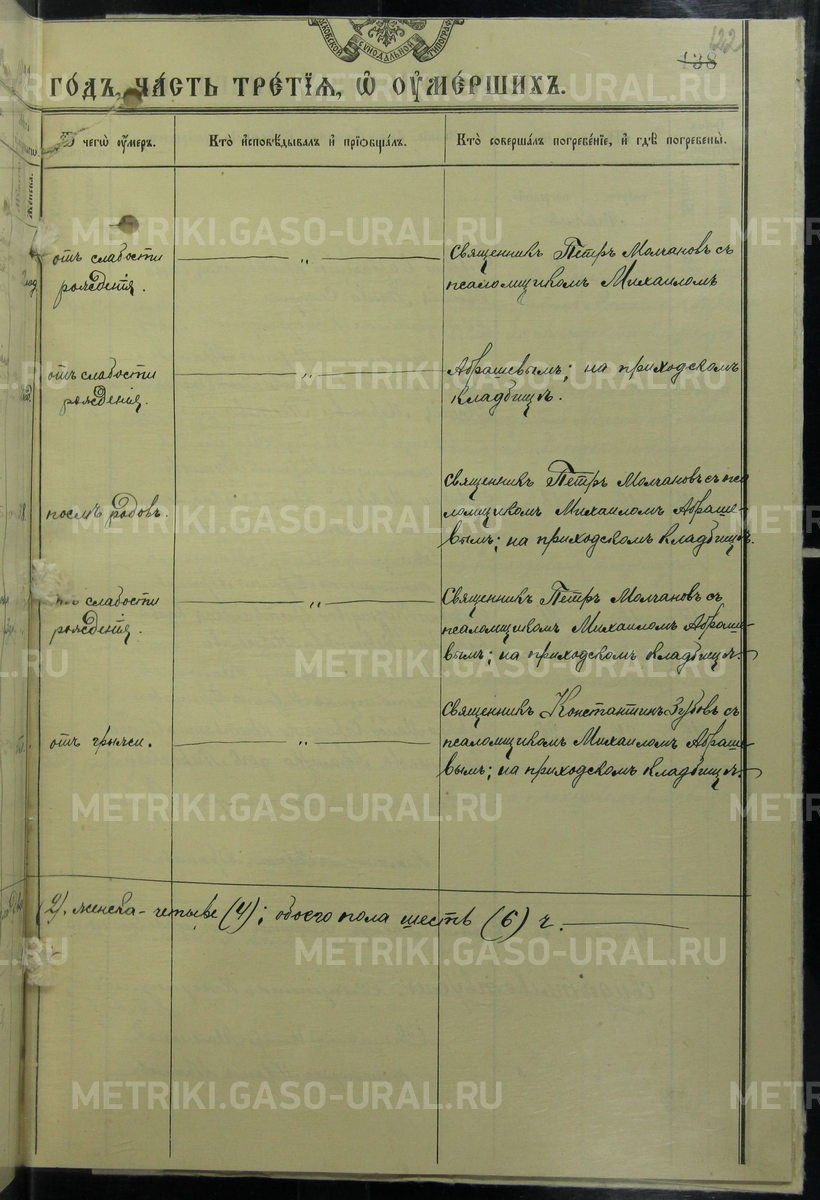 МОСКОВСКОЙ СѴНОДАЛЬНОЙ ТИПОГРАФ
122
138
ГО́ДЪ, ЧА́СТЬ ТРЕ́ТІѦ, Ѡ҆ ОУ҆МЕ́РШИХЪ.
чегѡ̀ ᲂу҆́меръ.
Кто̀ и҆сповѣ́дывалъ и҆ прїѻбща́лъ.
Кто̀ соверша́лъ погребе́нїе, и҆ гдѣ̀ погребены̀.
отъ слабости
рожденія.
— „ —
Священникъ Петръ Молчановъ съ
псаломщикомъ Михаиломъ
отъ слабости
рожденія.
— „ —
Абрашевымъ; на приходскомъ
кладбищѣ.
послѣ родовъ.
Священникъ Петръ Молчановъ съ пса
ломщикомъ Михаиломъ Абраше-
вымъ; на приходскомъ кладбищѣ.
слабости
рожденія.
— „ —
Священникъ Петръ Молчановъ съ
псаломщикомъ Михаиломъ Абраше-
вымъ; на приходскомъ кладбищѣ.
отъ грыжи.
— „ —
Священникъ Константинъ Зубовъ съ
псаломщикомъ Михаиломъ Абраше-
вымъ; на приходскомъ кладбищѣ.
(2), женска - четыре (4); обоего пола шесть (6) ч.
METRIKI.GASO-URAL.RU